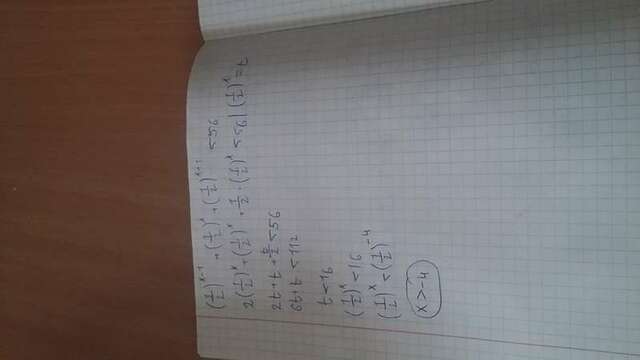 (1/2)^(x-1) + (1/2)^x + (1/2)^(x+1) < 56
2(1/2)^x + (1/2)^x + 1/2 · (1/2)^x < 56 | (1/2)^x = t
2t + t + t/2 < 56
6t + t < 112
t < 16
(1/2)^x < 16
(1/2)^x < (1/2)^-4
x > -4